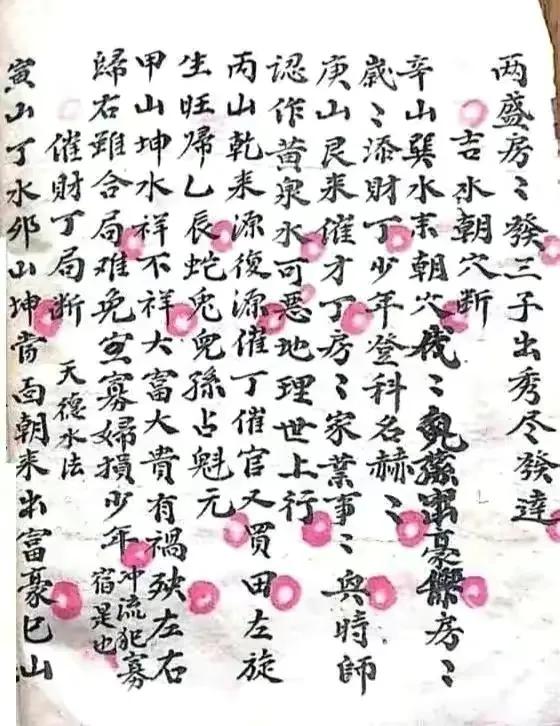 两盛房〻發三子出秀尽發達
吉水朝穴断
辛山巽水来朝穴〻出豪傑房〻
歲〻添財丁少年登科名赫〻
庚山艮来催才丁房〻家業事〻興時師
認作黄泉水可惡地理世上行
丙山乾来源復源催丁催官又買田左旋
生旺歸乙辰蛇兎兒孫占魁元
甲山坤水祥不祥大富大貴有禍殃左右
歸右雖合局难免寡婦損少年 冲流犯寡宿是也
催財丁局断 天德水法
寅山丁水卯山坤當面朝来出富豪巳山